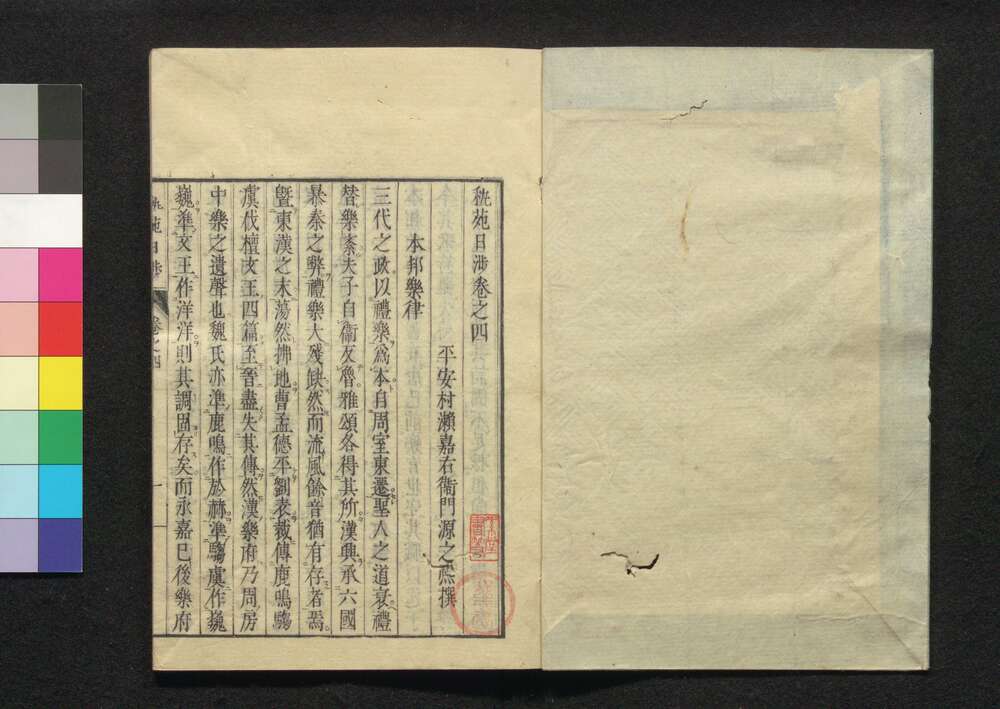 秇苑日渉卷之四
平安村瀬嘉右衞門源之熙撰
本邦樂律
三代之政以禮樂爲本自周室東遷聖人之道衰禮
替樂紊夫子自衞反魯雅頌各得其所漢興承六國
暴秦之弊禮樂大殘缺然而流風餘音猶有存者焉
曁東漢之末蕩然拂地曹孟德平劉表裁傳鹿鳴騶
虞伐檀文王四篇至晉盡失其傳然漢樂府乃周房
中樂之遺聲也魏氏亦準鹿鳴作於赫準騶虞作巍
巍準文王作洋洋則其調固存矣而永嘉已後樂府
秇苑日渉 卷之四 一